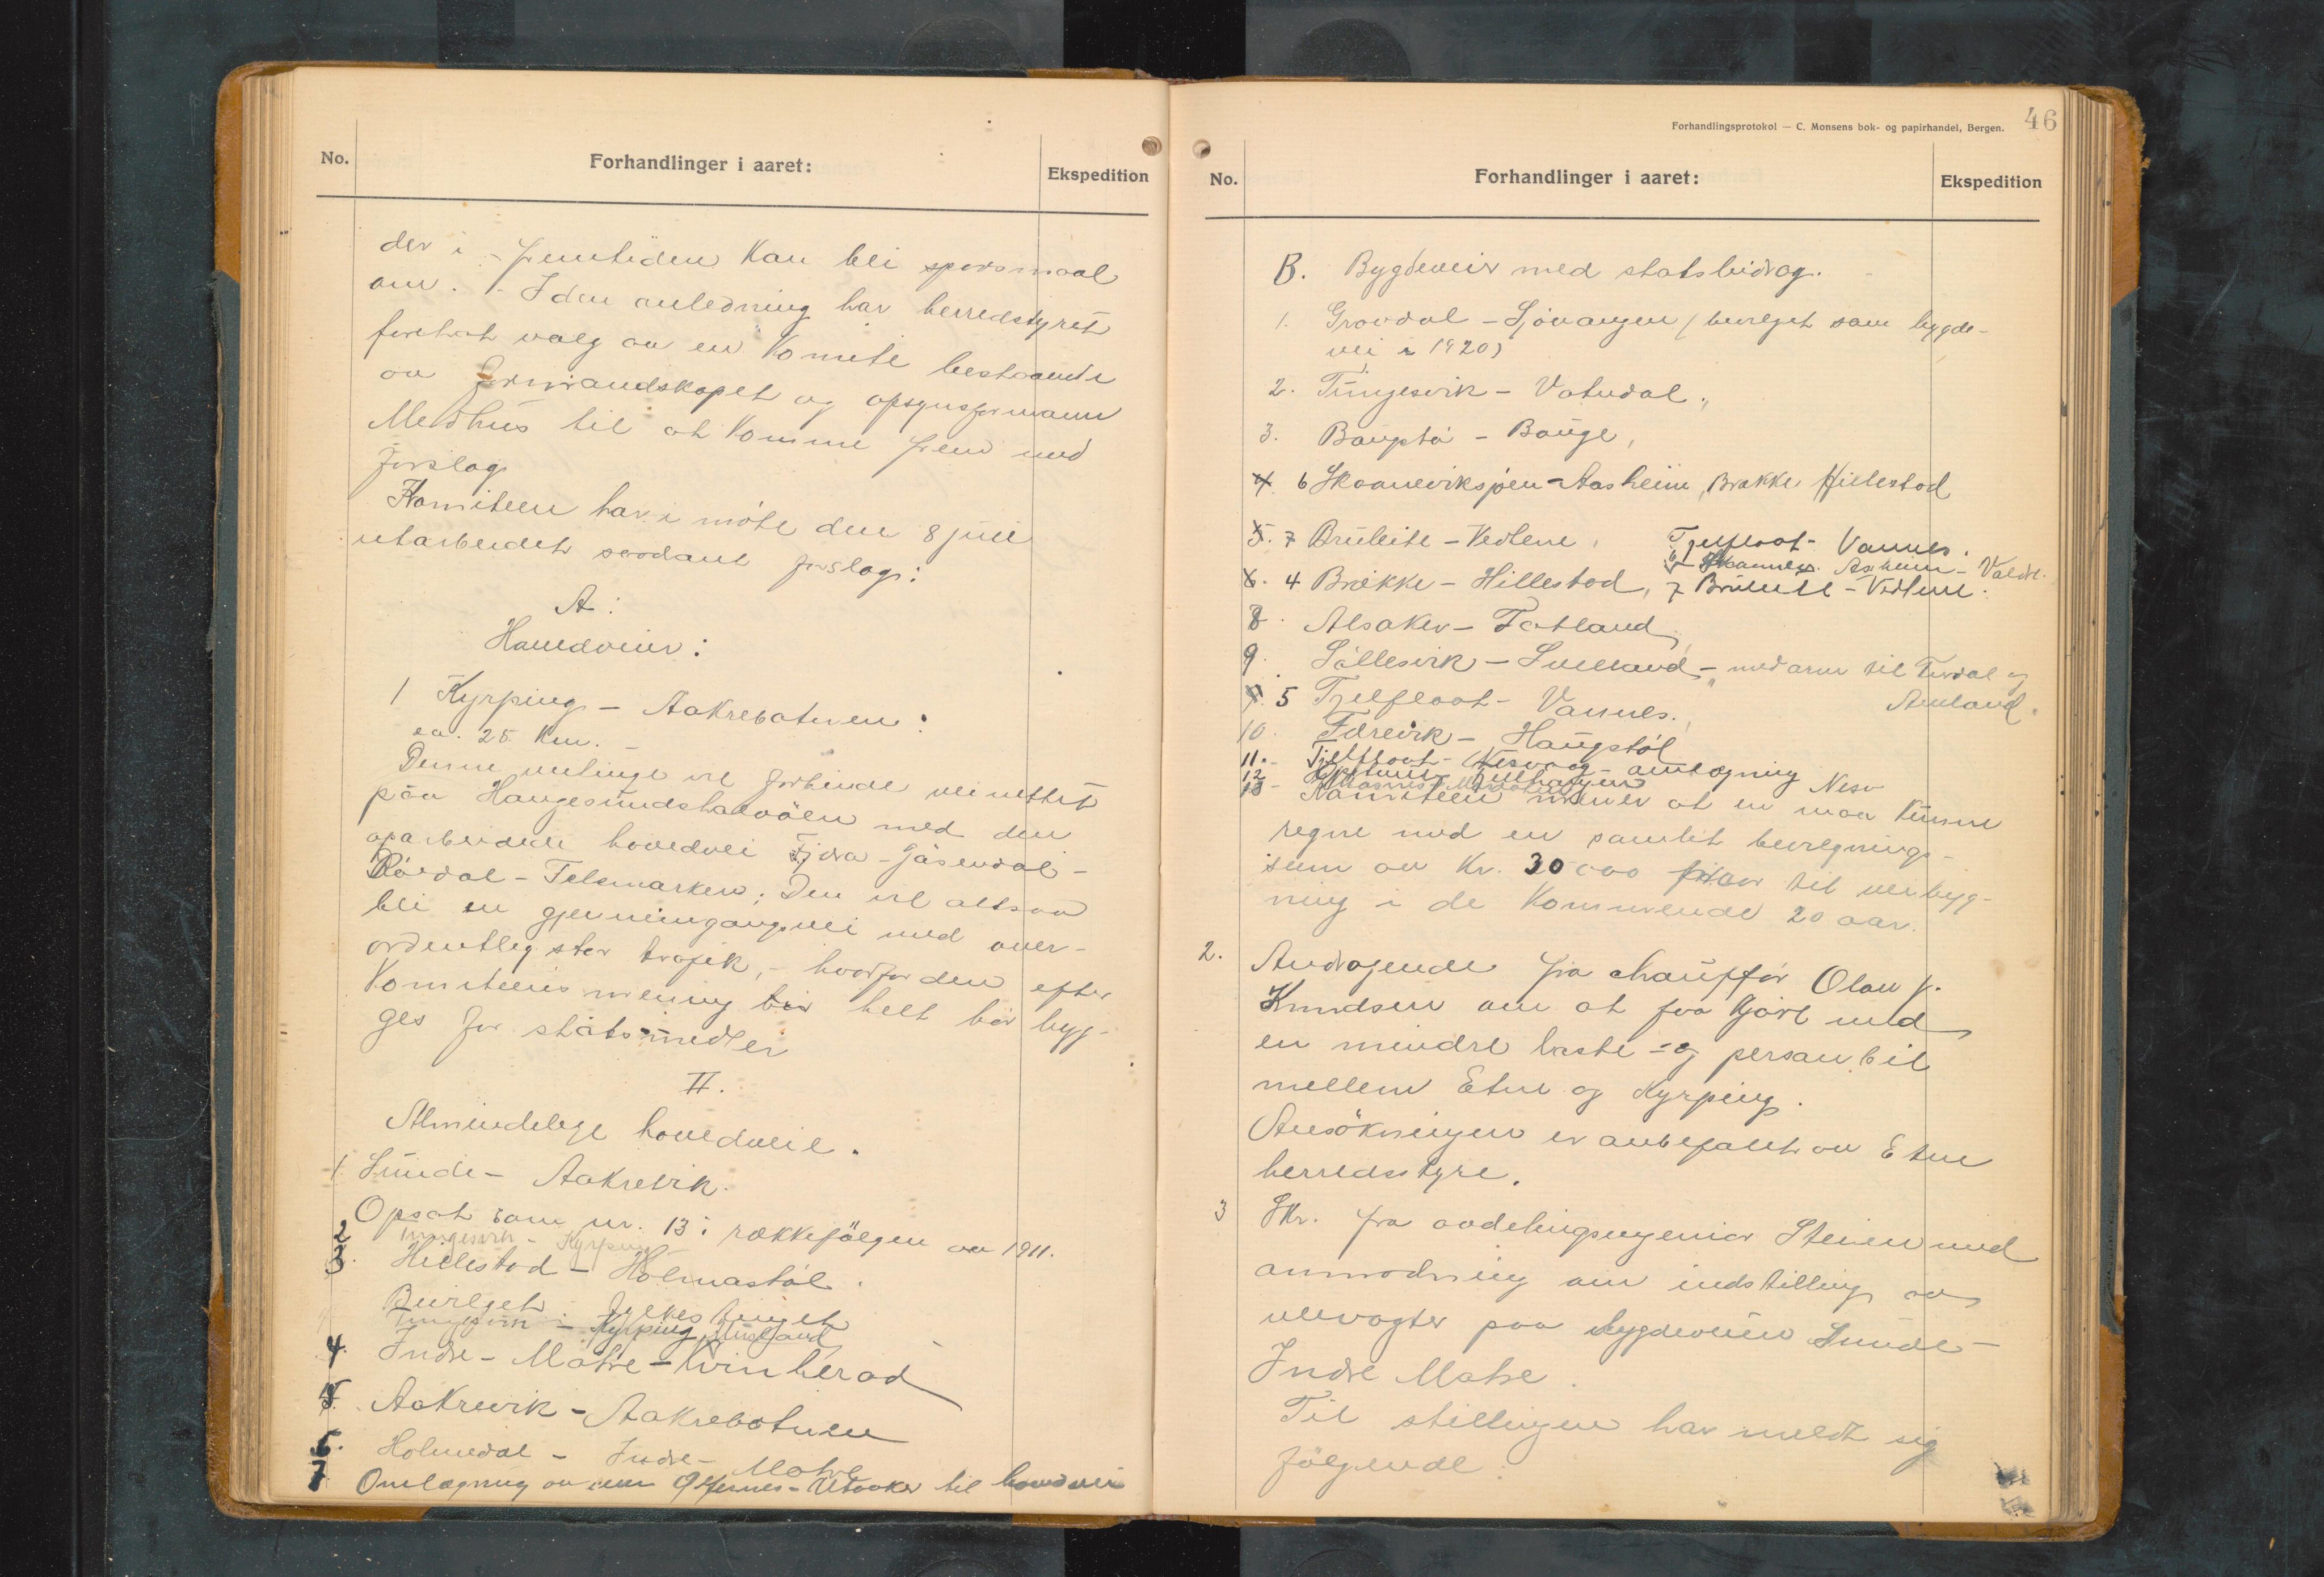 No.
Forhandlinger i aaret:
Ekspedition
der i fremtiden kan bli spørsmaal
om. - I den anledning har herredstyret
foretat valg av en komite bestaaende
av formandskapet og opsynsformann
Medhus til at komme frem med
forslag
Komiteen har i møte den 8 juli
utarbeidet saadant forslag:
A:
Hovedveier:
1 Kyrping - Aakrebotnen:
ca. 25 km. -
Denne veilinje vil forbinde veinettet
paa Haugesundshalvöen med den
oparbeidede hovedvei Fjæra - Jøsendal -
Røldal - Telemarken; Den vil altsaa
bli en gjennemgangsvei med over-
ordentlig stor trafik, - hvorfor den efter
komiteens mening bør helt bør byg-
ges for statsmidler
II.
Almindelige hovedveie.
1 Sunde - Aakrevik.
Opsat som nr. 13 i rækkefølgen av 1911.
2 Tungesvik - Kyrping
3. Hillestad - Holmastøl.
Bevilget. Fylkestinget
Tungesvik - Kyrping
4. Indre - Matre - Kvinherad
5. Aakrevik - Aakrebotnen
6. Holmedal - Indre - Matre
7 Omlægning av veien Ølfernes - Utaaker til hovedvei
Forhandlingsprotokol — C. Monsens bok- og papirhandel, Bergen.
46
No.
Forhandlinger i aaret:
Ekspedition
B. Bygdeveier med statsbidrag.
1. Grovdal - Sjøvangen (bevilget som bygde-
vei i 1920)
2. Tungesvik - Vatndal.
3. Baugstø - Bauge,
4. 6 Skaaneviksjøen - Aasheim, Brække Hillestad
5. 7 Bruleite - Vedlene, Tjelflaat - Vannes.
6 Skaanev. Asheim - Valdre.
6. 4 Brække - Hillestad, 7 Bruleite - Vedlene.
8. Alsaker - Fatland
9. Sållesvik - - med arm til og
Amland.
7. 5 Tjelflaat - Vannes.
10. Færevik - Haugstøl
11. - Tjelflaat - Nesvaag - omlægning Nesv
12
13 -
Komiteen mener at en maa kunne
regne med en samlet bevilgnings-
sum av kr. 30 000 pr aar til veibyg-
ning i de kommende 20 aar.
2. Andragende fra chauffør Olav J.
Knudsen om at faa kjøre med
en mindre laste - og personbil
mellem Etne og Kyrping.
Ansökningen er anbefalet av Etne
herredsstyre.
3 Skr. fra avdelingsingeniør Steien med
anmodning om indstilling av
veivogter paa bygdeveien Sunde -
Indre Matre.
Til stillingen har meldt sig
følgende: